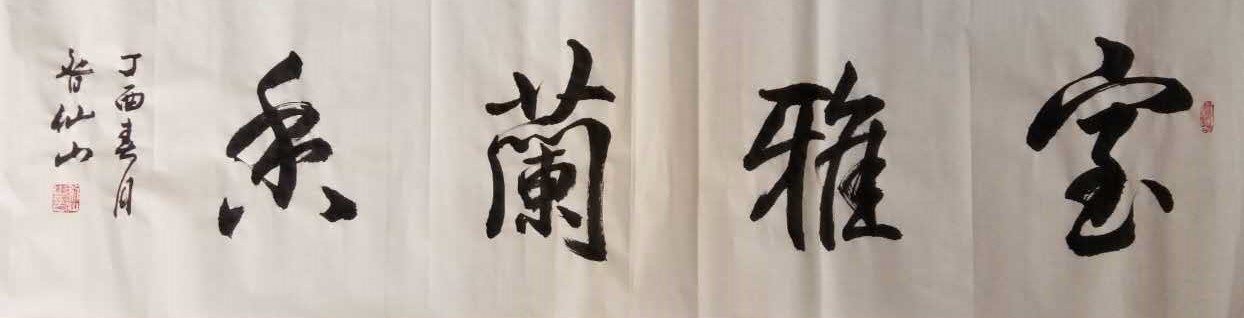 室雅蘭香
丁酉春月
晉仙山